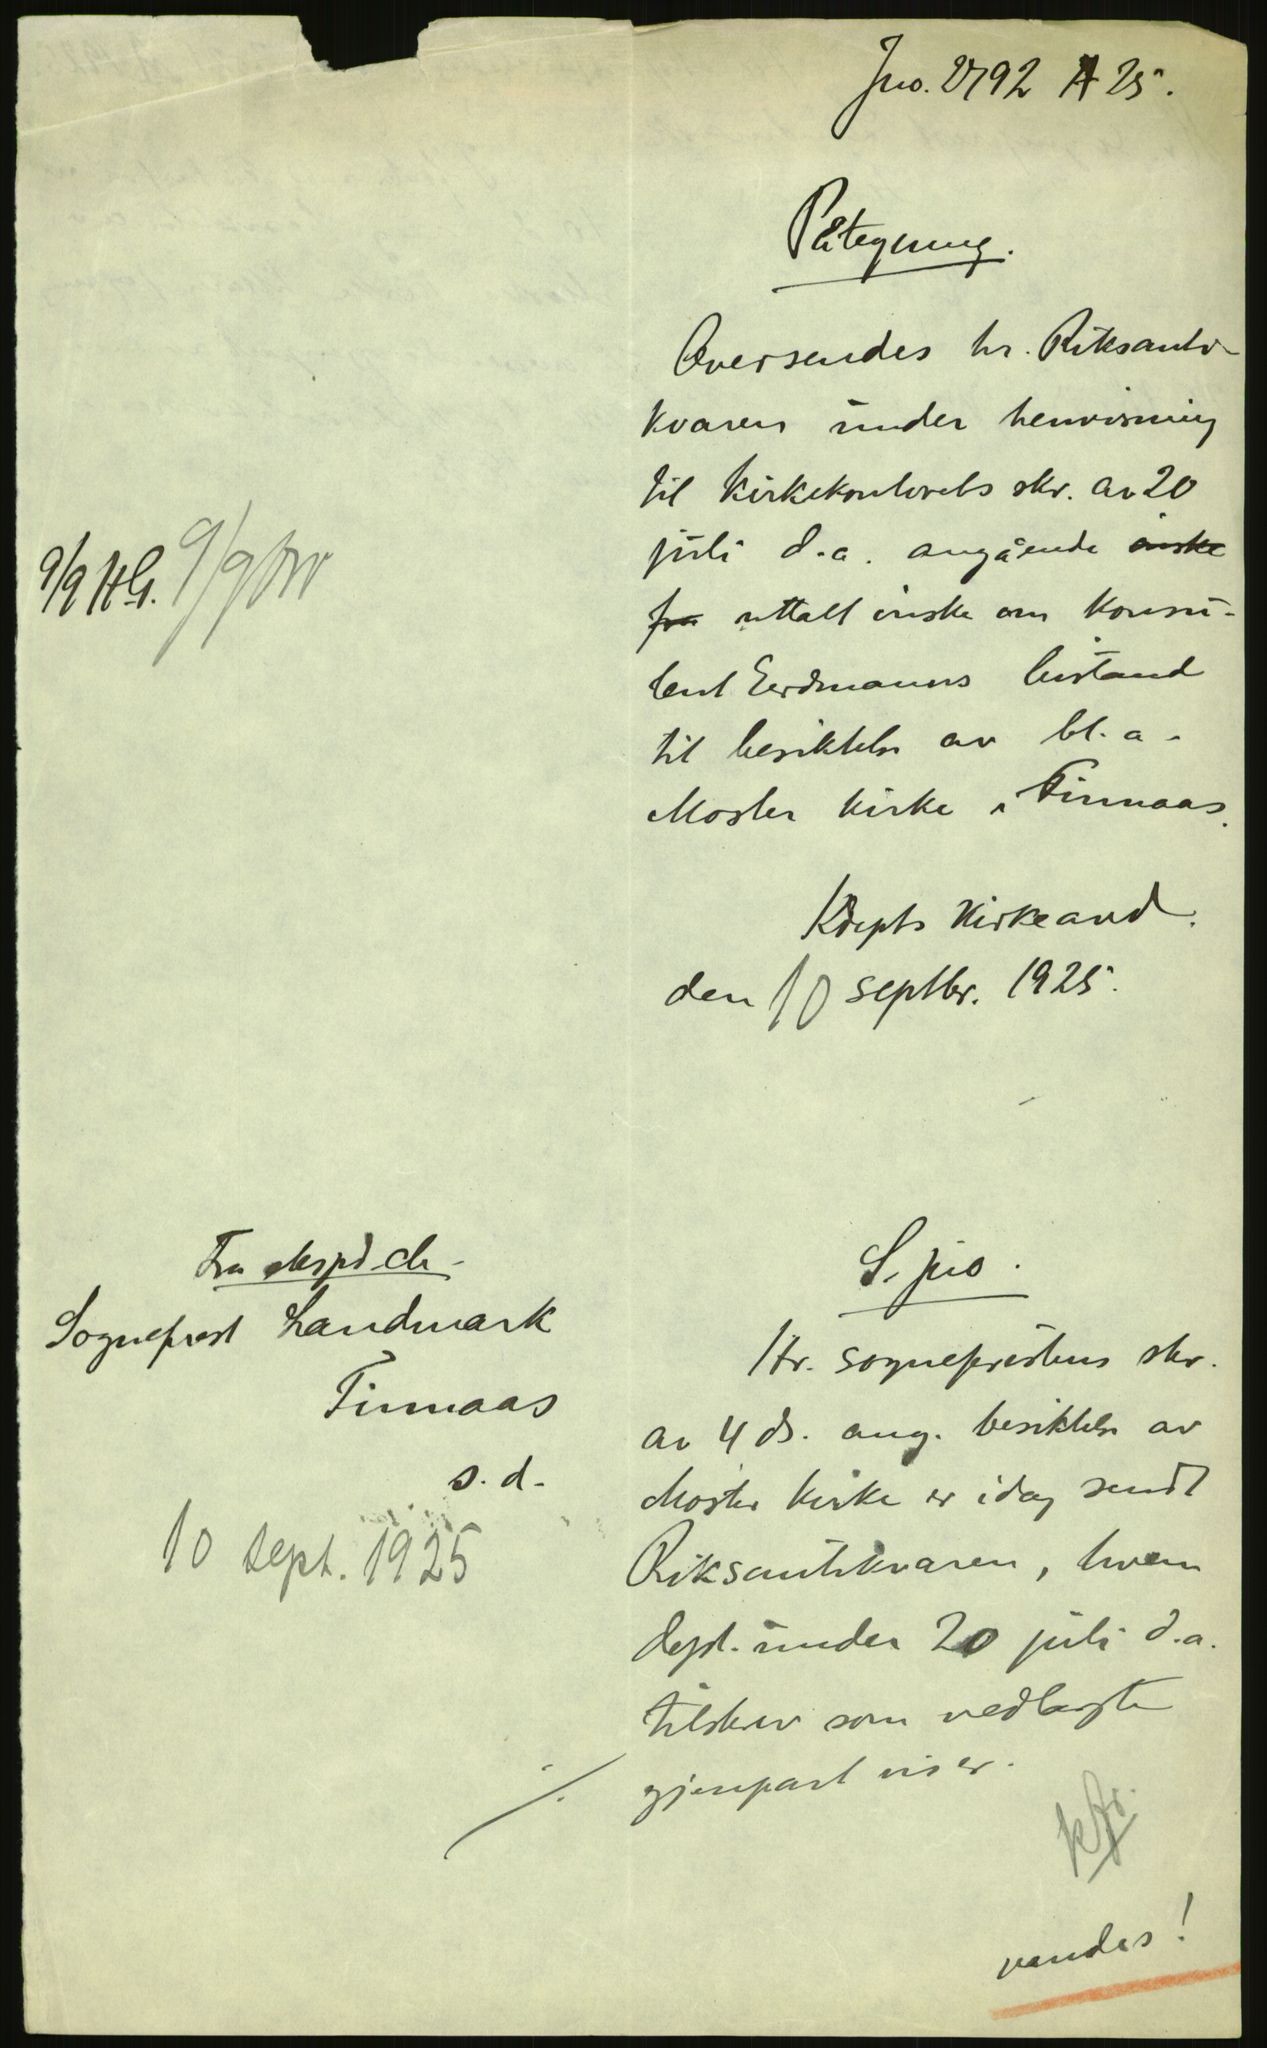 Jno. 2792 A 25.
Påtegning.
Oversendes hr. Riksanti-
kvaren under henvisning
til Kirkekontorets skr. av 20
juli d.a. angående ønske
fra uttalt ønske om konsu-
lent Erdmanns bistand
til besiktelse av bl.a.
Moster kirke i Finnaas.
Kdepts Kirkeavd.
den 10 septbr. 1925.
9/9 HG. 9/9
Fra eksp.sch.
Sogneprest Landmark
Finnaas
s.d.
10 sept. 1925
S. jno.
Hr. sogneprestens skr.
av 4 ds. ang. besiktelse av
Moster kirke er idag sendt
Riksantikvaren, hvem
Dept. under 20 juli d.a.
tilskrev som vedlagte
·/. gjenpart viser.
vendes!